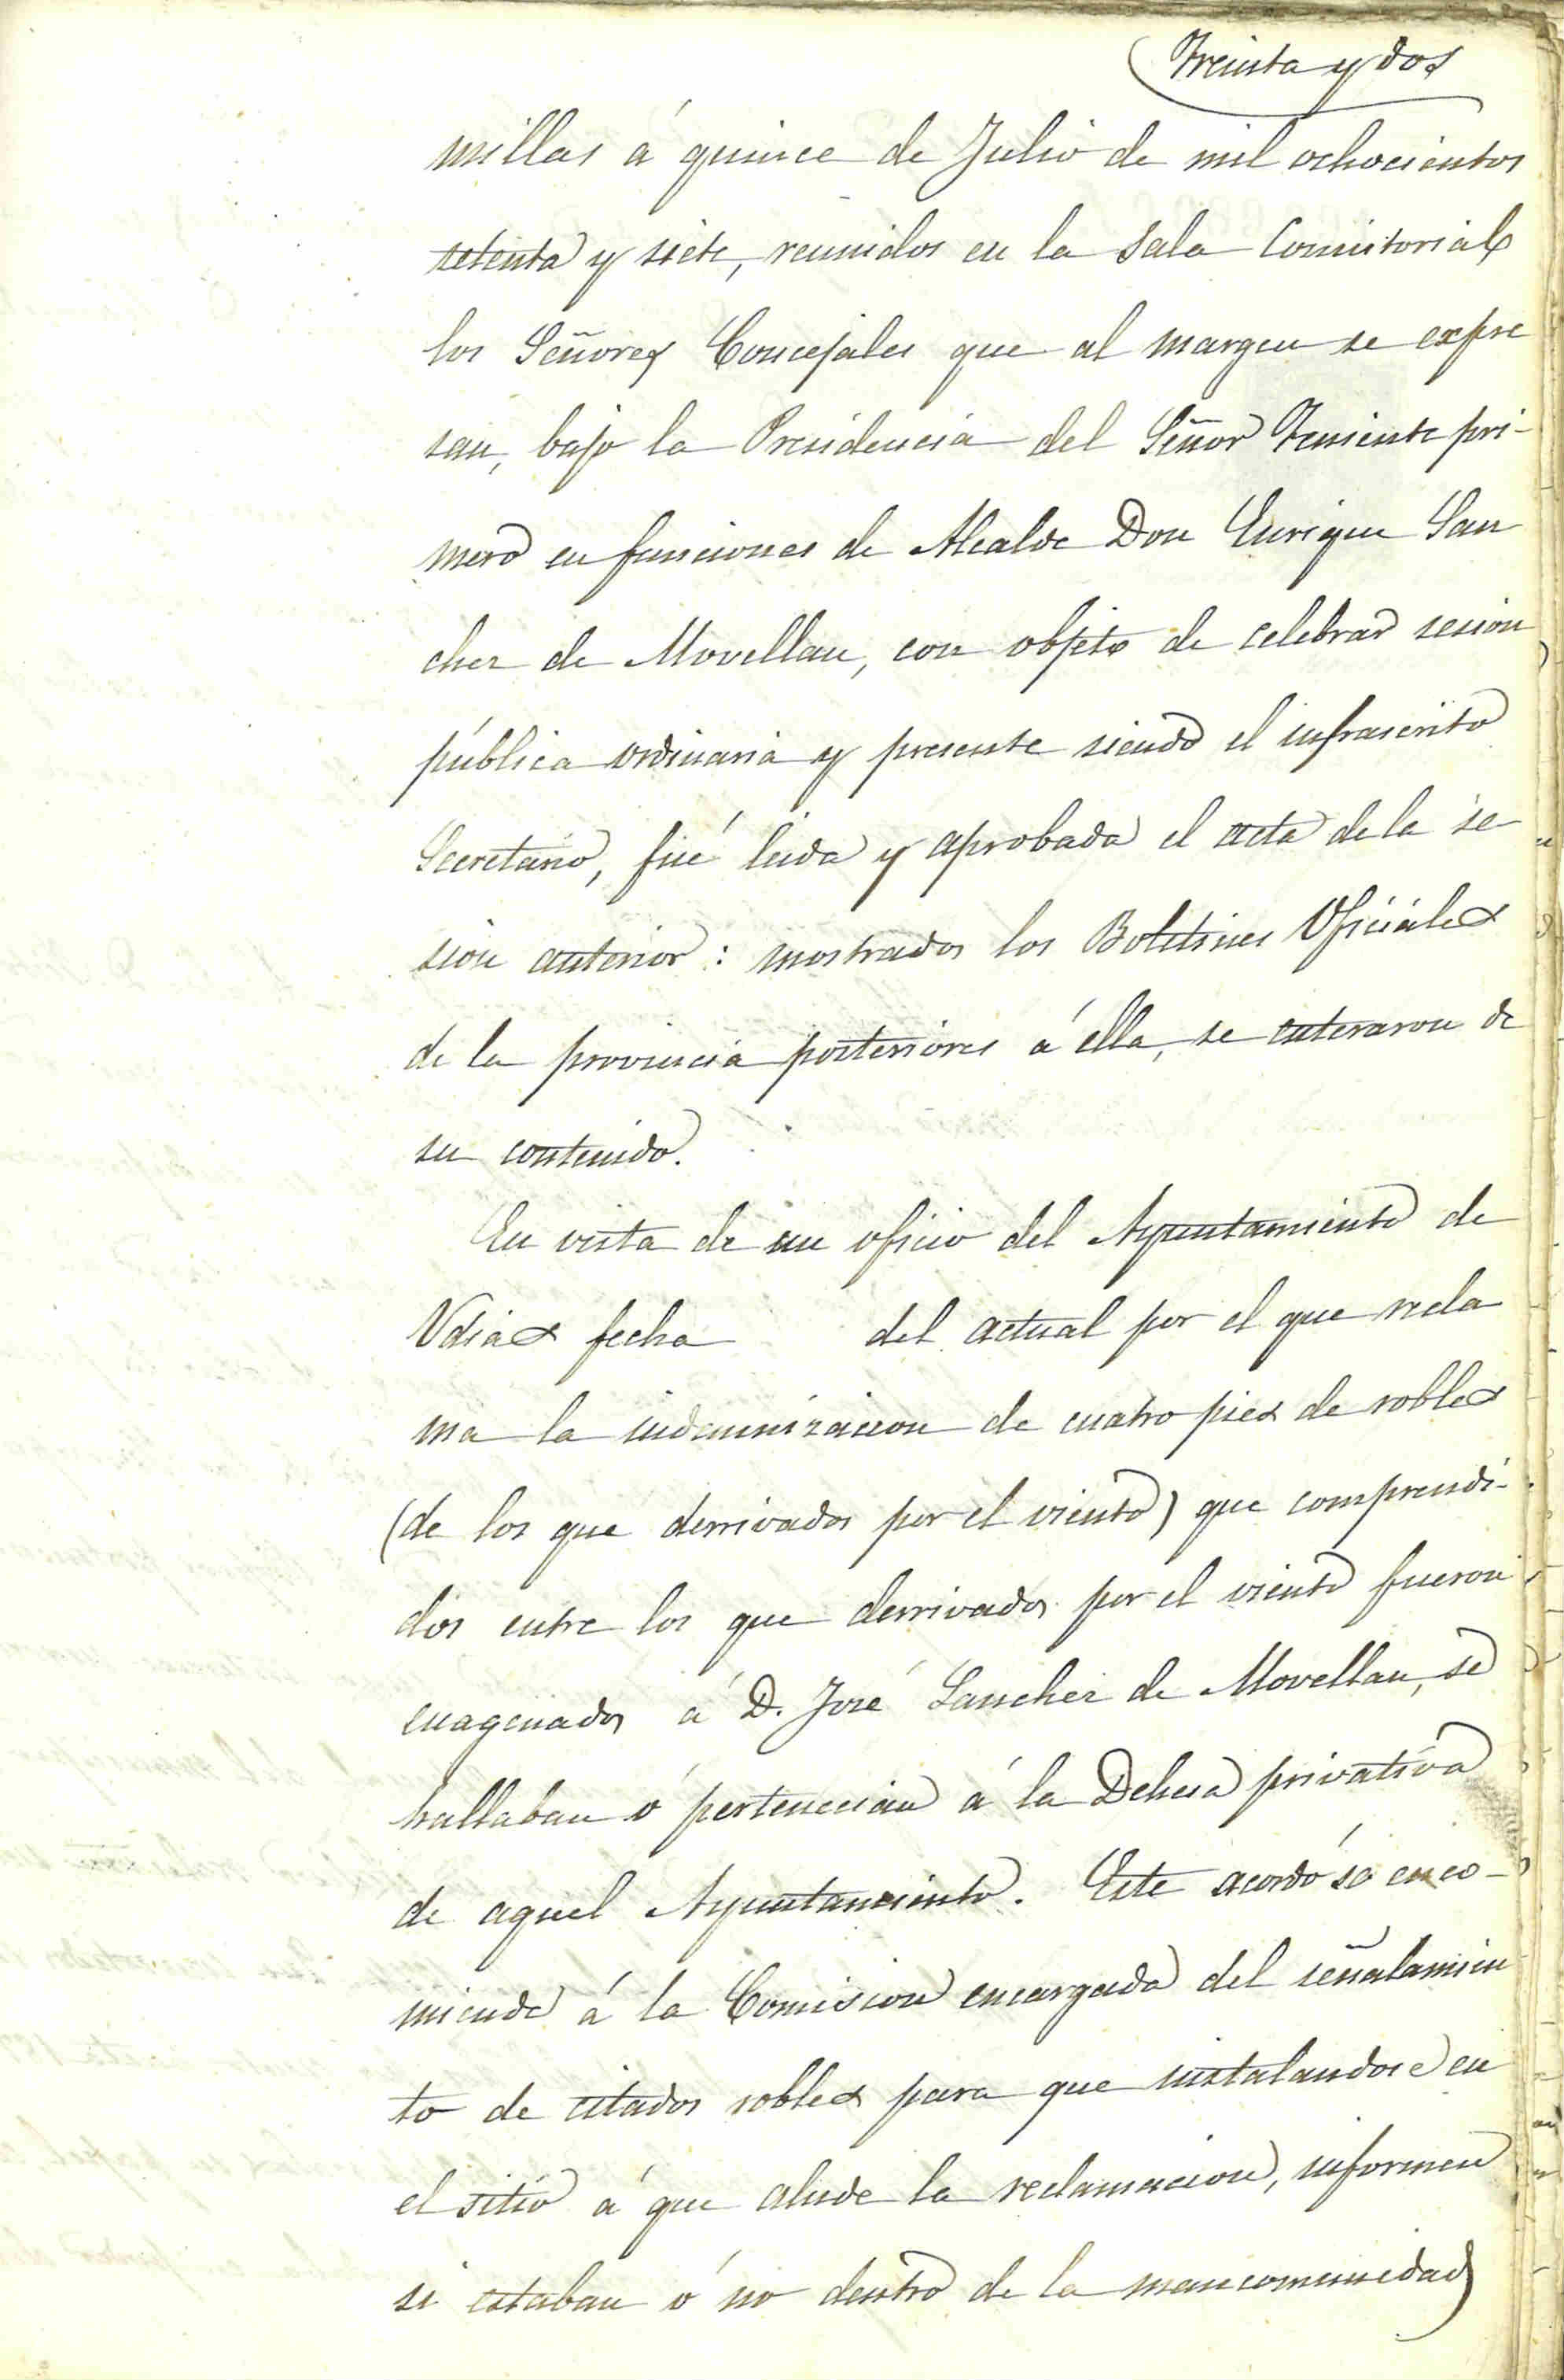 Treinta y dos
millas á quince de Julio de mil ochocientos
setenta y siete, reunidos en la Sala Consistorial
los Señores Concejales que al margen se expre
san, bajo la Presidencia del Señor Teniente pri-
mero en funciones de Alcalde Don Enrique San
chez de Movellan, con objeto de celebrar sesion
pública ordinaria y presente siendo el infrascrito
Secretario, fué leida y aprobada el acta de la se
sion anterior: mostrados los Boletines Oficiales
de la provincia posteriores á ella, se enteraron de
su contenido.
En vista de un oficio del Ayuntamiento de
Udias fecha del actual por el que recla
ma la indemnizacion de cuatro pies de robles
(de los que derrivados por el viento) que comprendi-
dos entre los que derrivados por el viento fueron
enagenados á D. José Sanchez de Movellan, se
hallaban ó pertenecian á la Dehesa privativa
de aquel Ayuntamiento. Este acordó se enco-
miende á la Comision encargada del señalamien
to de citados robles para que instalandose en
el sitio á que alude la reclamacion, informen
si estaban ó no dentro de la mancomunidad